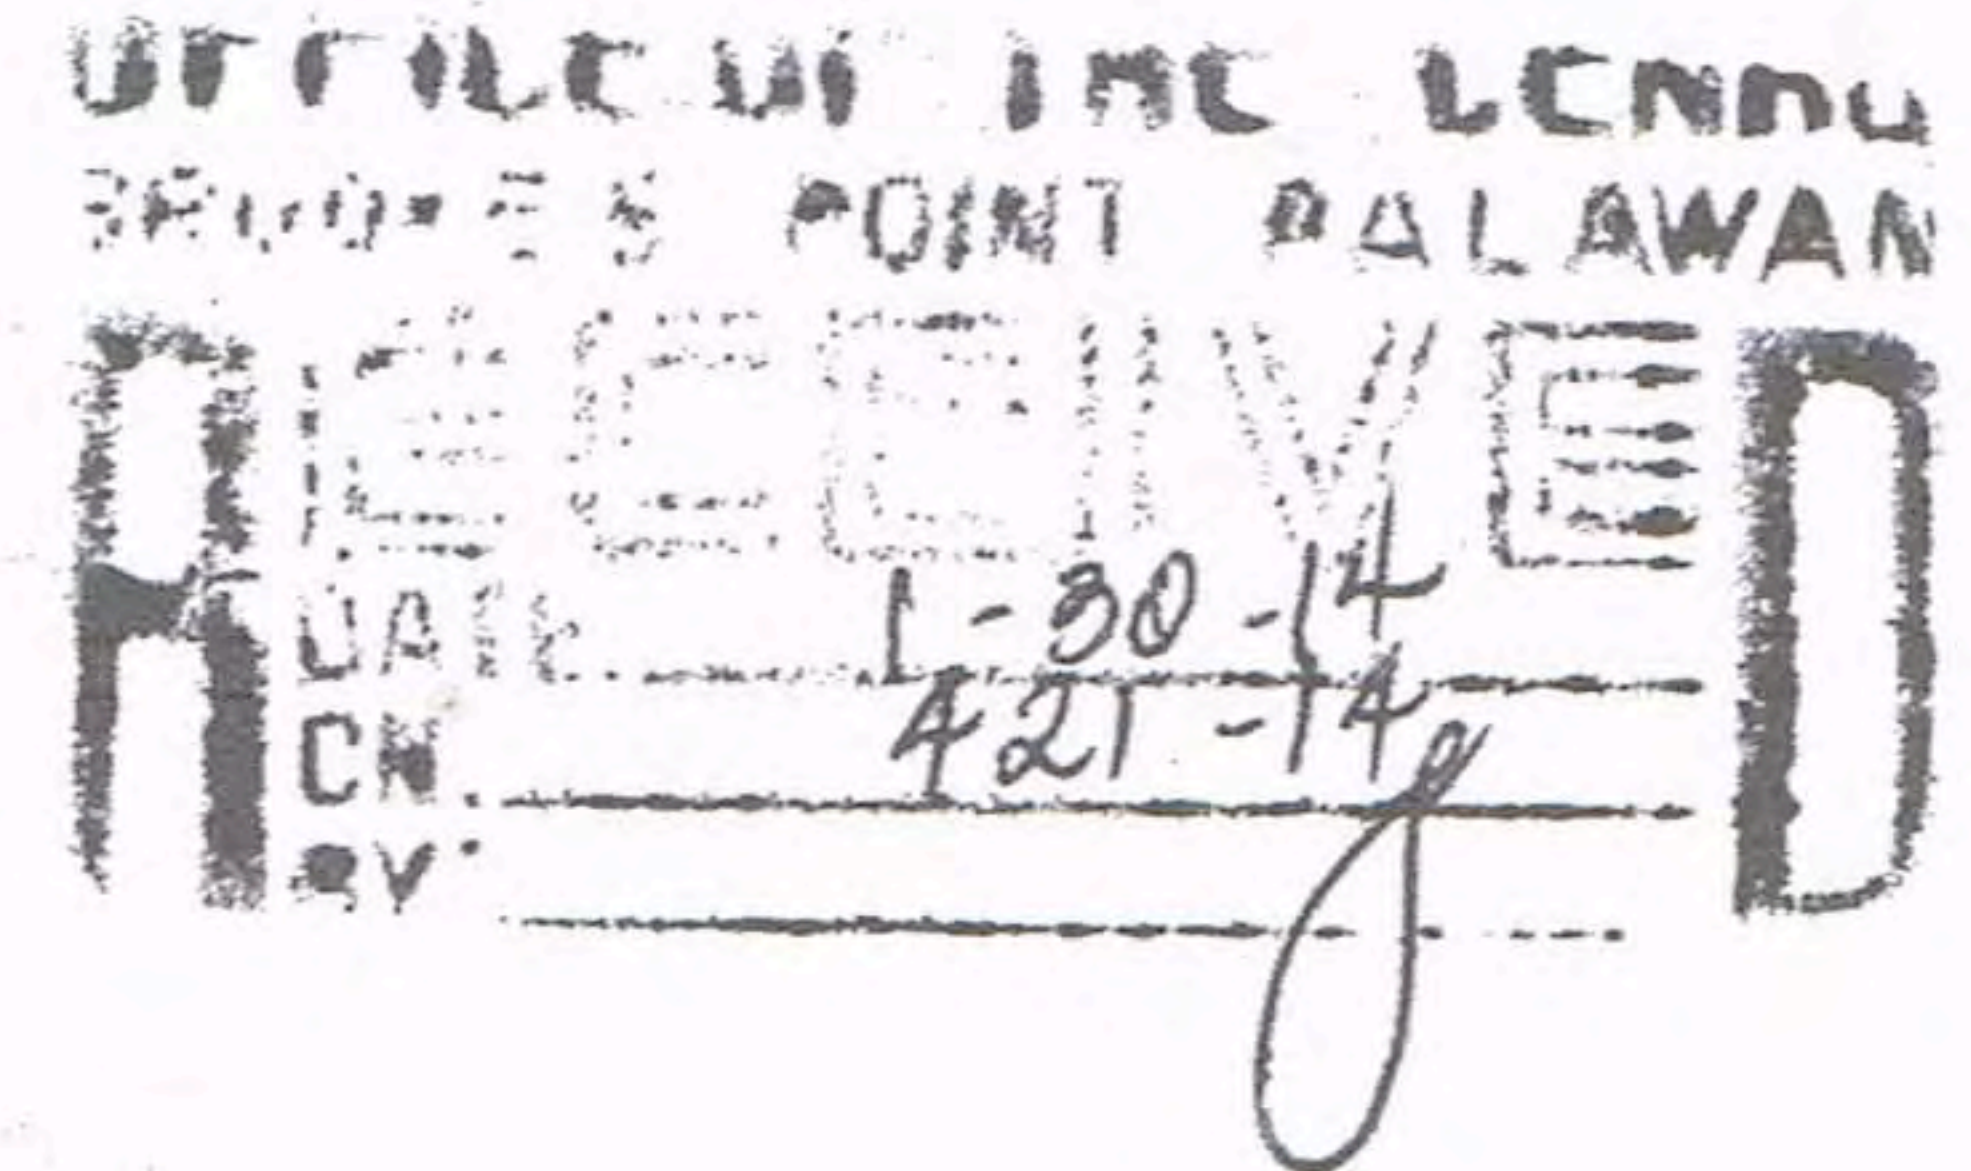 OFFICE OF THE CENRO
BROOKE'S POINT PALAWAN
RECEIVED
DATE 1-30-14
CN. 421-14
BY: